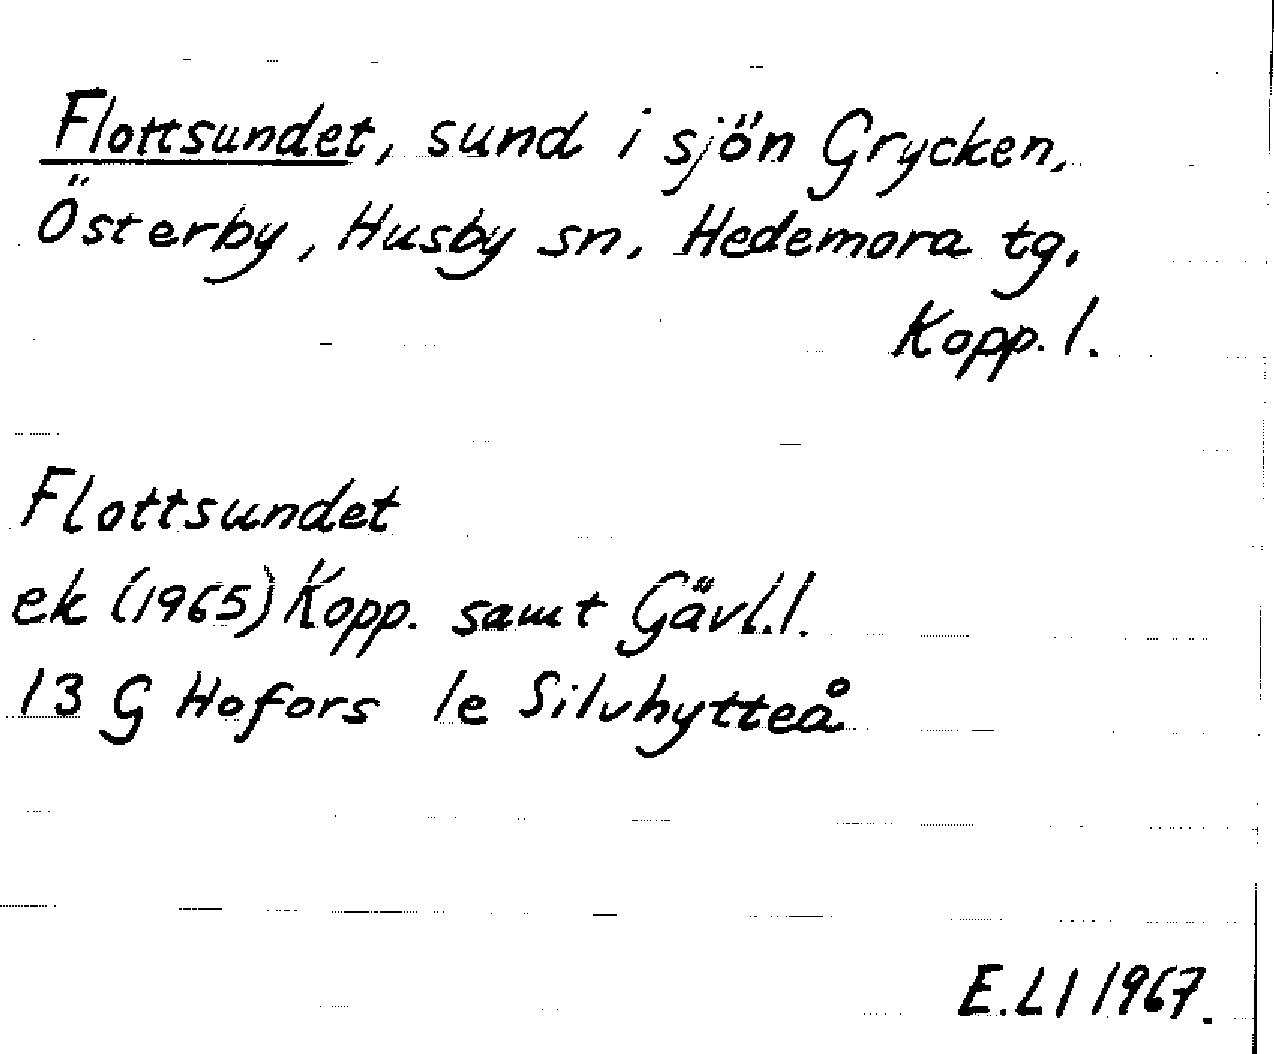 Flottsundet, sund i sjön Grycken,
Österby, Husby sn, Hedemora tg,
Kopp. l.
Flottsundet
ek (1965) Kopp. samt Gävl. l.
13 G Hofors 1e Silvhytteå
E. L I 1967.